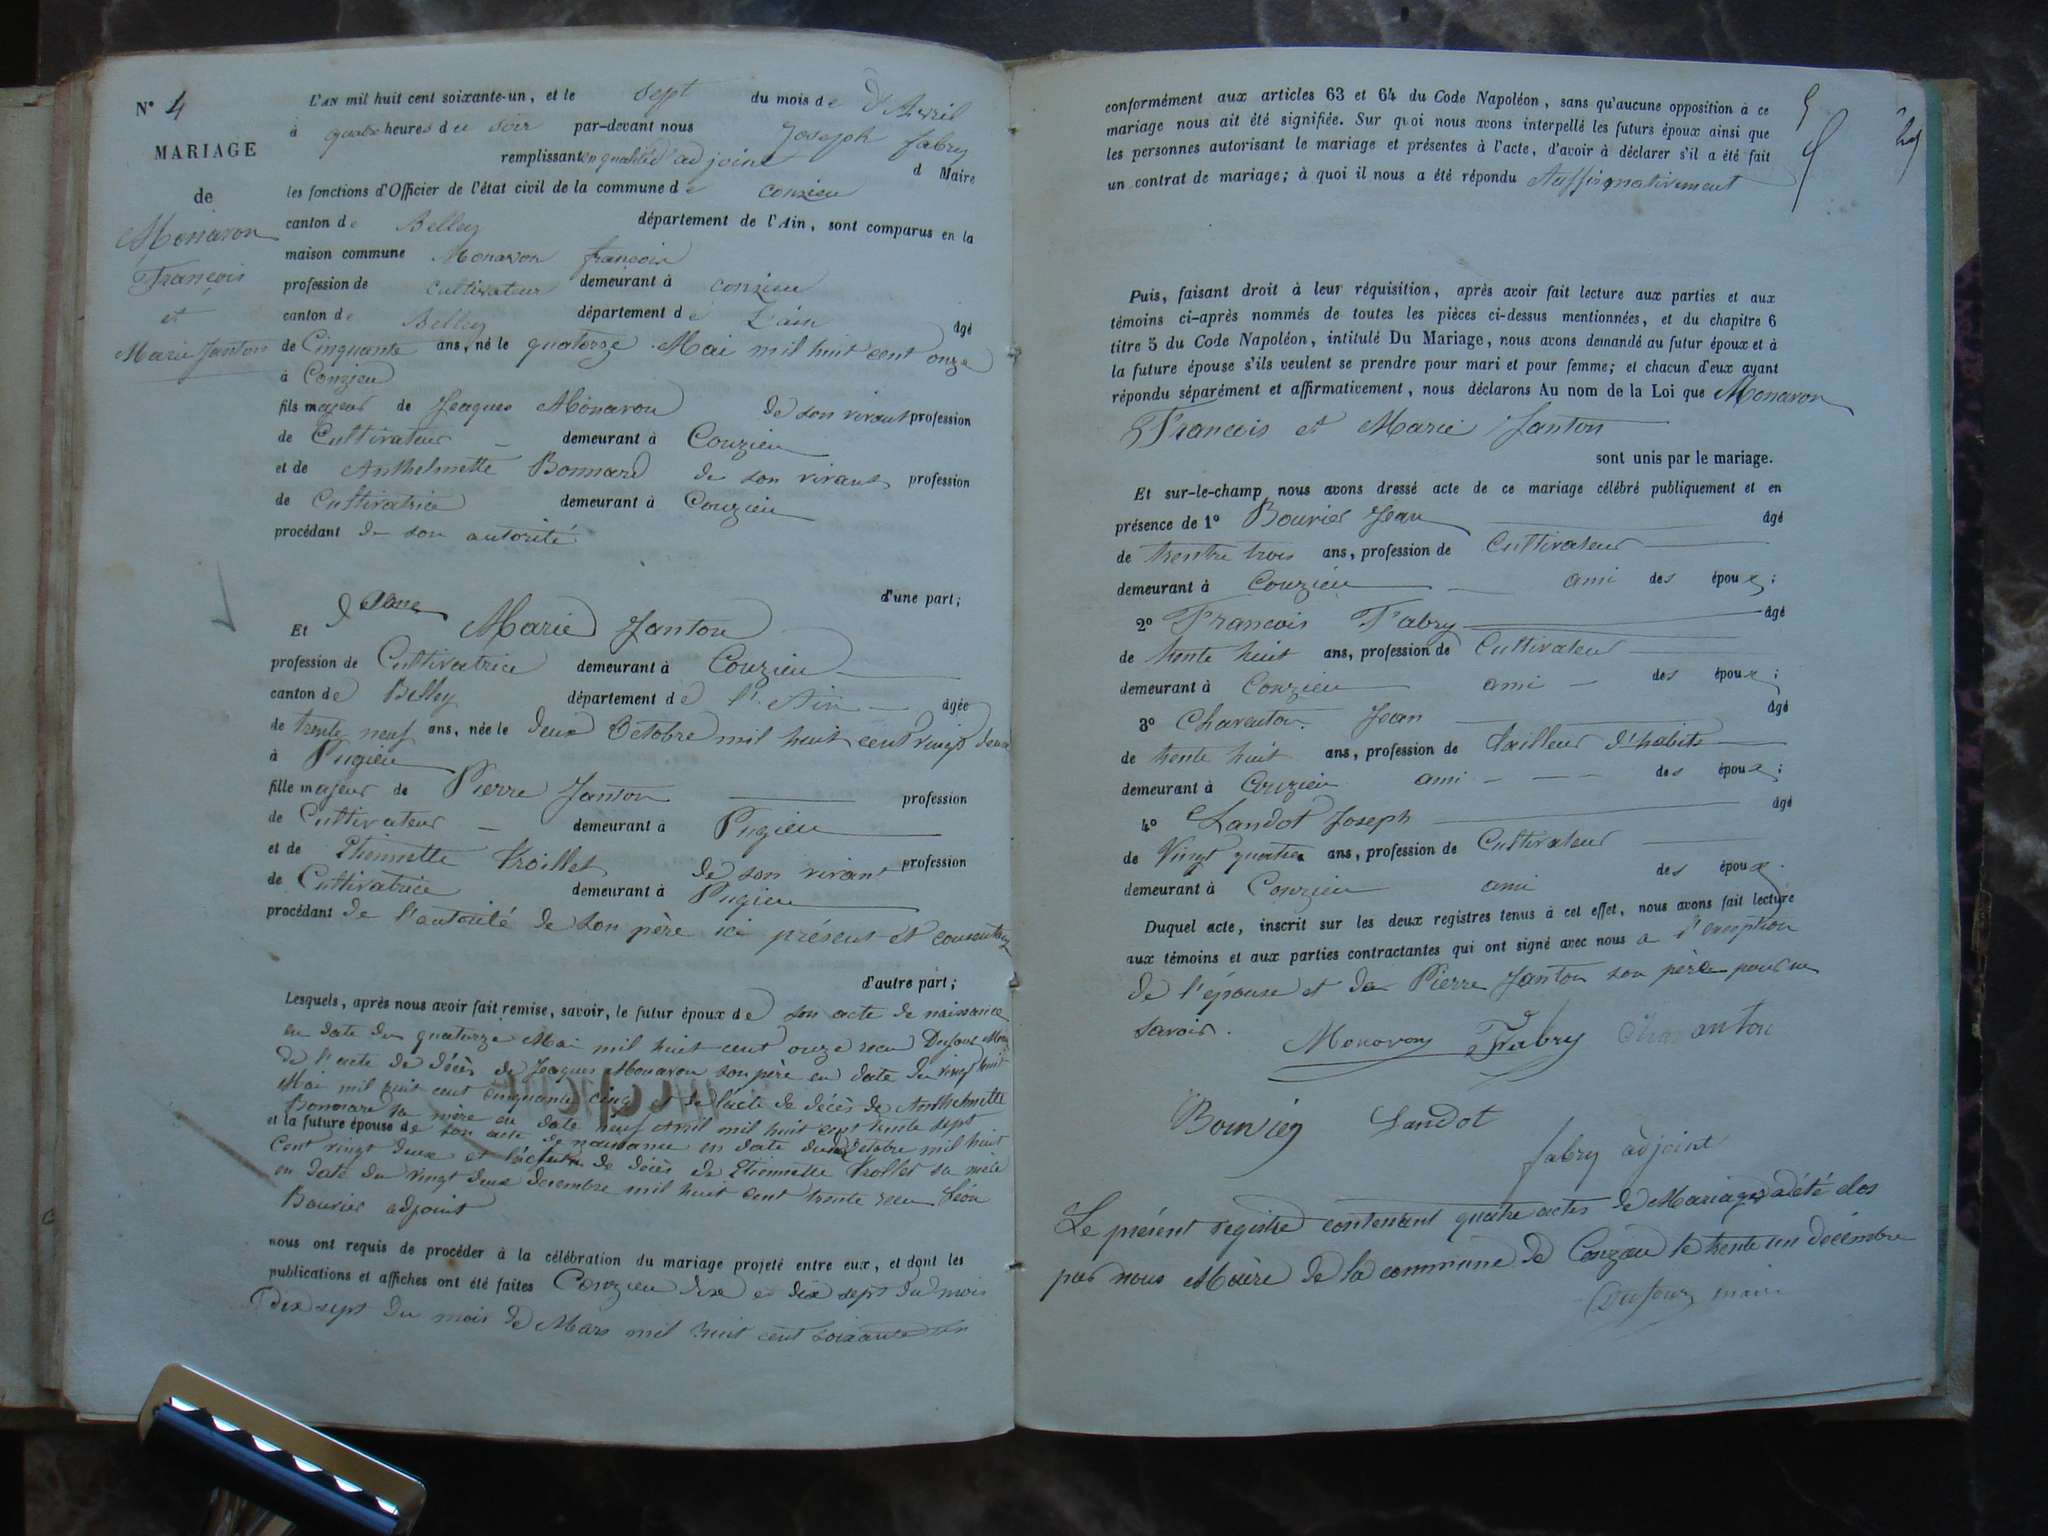 N° 4
MARIAGE
de
Monavon
François
et
Marie Janton
L'AN mil huit cent soixante-un, et le sept du mois de d'Avril
à quatre heures du soir par-devant nous Joseph fabry
remplissant en qualité d'adjoint d Maire
les fonctions d'Officier de l'état civil de la commune de conzieu
canton de Belley département de l'Ain, sont comparus en la
maison commune Monavon françois
profession de cultivateur demeurant à conzieu
canton de Belley département de L'ain âgé
de Cinquante ans, né le quatorze Mai mil huit cent onze
à Conzieu
fils majeur de Jeaques Monavon de son vivant profession
de Cultivateur demeurant à Conzieu
et de Anthelmette Bonnard de son vivant profession
de Cultivatrice demeurant à Conzieu
procédant de son autorité
d'une part;
Et Marie Janton
profession de Cultivatrice demeurant à Conzieu
canton de Belley département de l'Ain âgée
de trente neuf ans, née le deux Octobre mil huit cent vingt deux
à Pugieu
fille majeur de Pierre Janton profession
de Cultivateur demeurant à Pugieu
et de Etiennette Trollet de son vivant profession
de Cultivatrice demeurant à Pugieu
procédant de l'autorité de son père ici présent et consentant
d'autre part;
Lesquels, après nous avoir fait remise, savoir, le futur époux de son acte de naissance
en date du quatorze Mai mil huit cent onze recu Dufour
de l'acte de décès de Jeaques Monavon son père en date du vingt huit
Mai mil huit cent cinquante cinq et de l'acte de décès de Anthelmette
Bonnard sa mère en date neuf Avril mil huit cent trente sept
et la future épouse de son acte de naissance en date deux Octobre mil huit
cent vingt deux et l'acte de décès de Etiennette Trollet sa mère
en date du vingt deux decembre mil huit cent trente recu Léon
Bouvier adjoint
nous ont requis de procéder à la célébration du mariage projeté entre eux, et dont les
publications et affiches ont été faites Conzieu dix e dix sept du mois
dix sept du mois de Mars mil huit cent soixante un
conformément aux articles 63 et 64 du Code Napoléon, sans qu'aucune opposition à ce
mariage nous ait été signifiée. Sur quoi nous avons interpellé les futurs époux ainsi que
les personnes autorisant le mariage et présentes à l'acte, d'avoir à déclarer s'il a été fait
un contrat de mariage; à quoi il nous a été répondu Auffirmativement
Puis, faisant droit à leur réquisition, après avoir fait lecture aux parties et aux
témoins ci-après nommés de toutes les pièces ci-dessus mentionnées, et du chapitre 6
titre 5 du Code Napoléon, intitulé Du Mariage, nous avons demandé au futur époux et à
la future épouse s'ils veulent se prendre pour mari et pour femme; et chacun d'eux ayant
répondu séparément et affirmativement, nous déclarons Au nom de la Loi que Monavon
Francois et Marie Janton
sont unis par le mariage.
Et sur-le-champ nous avons dressé acte de ce mariage célébré publiquement et en
présence de 1° Bouvier Jean âgé
de trentre trois ans, profession de Cultivateur
demeurant à Conzieu ami des époux;
2° Francois Fabry âgé
de trente huit ans, profession de Cultivateur
demeurant à Conzieu ami des époux;
3° Charenton Jean âgé
de trente huit ans, profession de tailleur d'habits
demeurant à Conzieu ami des époux;
4° Landot Joseph âgé
de Vingt quatre ans, profession de Cultivateur
demeurant à Conzieu ami des époux.
Duquel acte, inscrit sur les deux registres tenus à cet effet, nous avons fait lecture
aux témoins et aux parties contractantes qui ont signé avec nous a l'exception
de l'épouse et de Pierre Janton son père pour ne
savoir.
Monavon Fabry Charanton
Bouvier Landot
fabry adjoint
Le présent registre contenant quatre actes de Mariages a été clos
par nous Maire de la commune de Conzieu le trente un décembre
Dufour maire